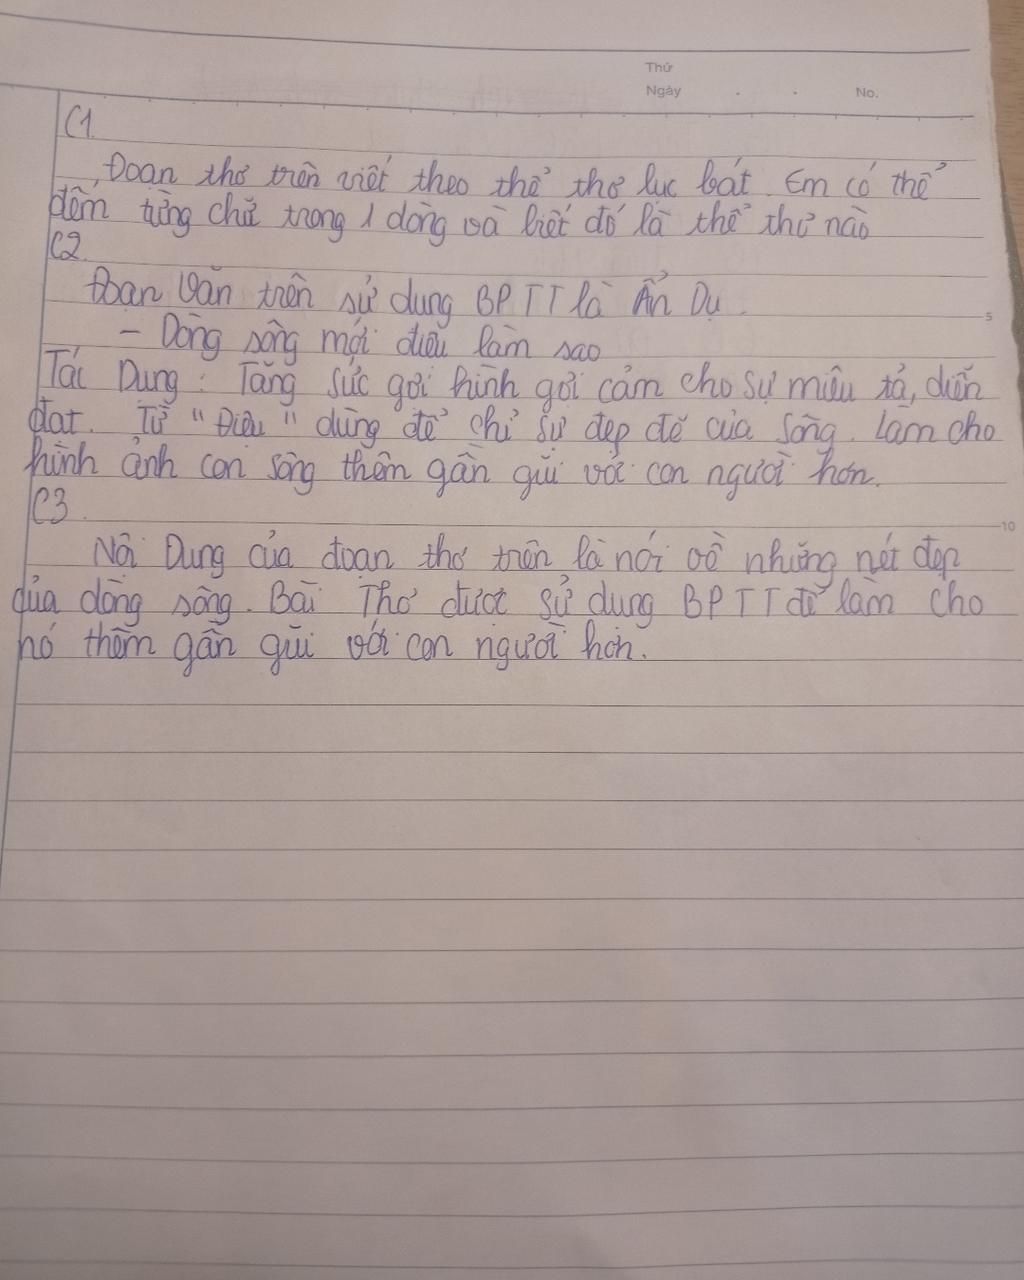 Thứ
Ngày . . No.
C1
Đoạn thơ trên viết theo thể thơ lục bát. Em có thể
đếm từng chữ trong 1 dòng và biết đó là thể thơ nào
C2.
Đoạn Văn trên sử dụng BPTT là Ẩn Dụ.
5
- Dòng sông mới điệu làm sao
Tác Dụng: Tăng sức gợi hình gợi cảm cho sự miêu tả, diễn
đạt. Từ "Điệu" dùng để chỉ sự đẹp đẽ của sông. Làm cho
hình ảnh con sông thêm gần gũi với con người hơn.
C3.
10
Nội Dung của đoạn thơ trên là nói về những nét đẹp
của dòng sông. Bài Thơ được sử dụng BPTT để làm cho
nó thêm gần gũi với con người hơn.